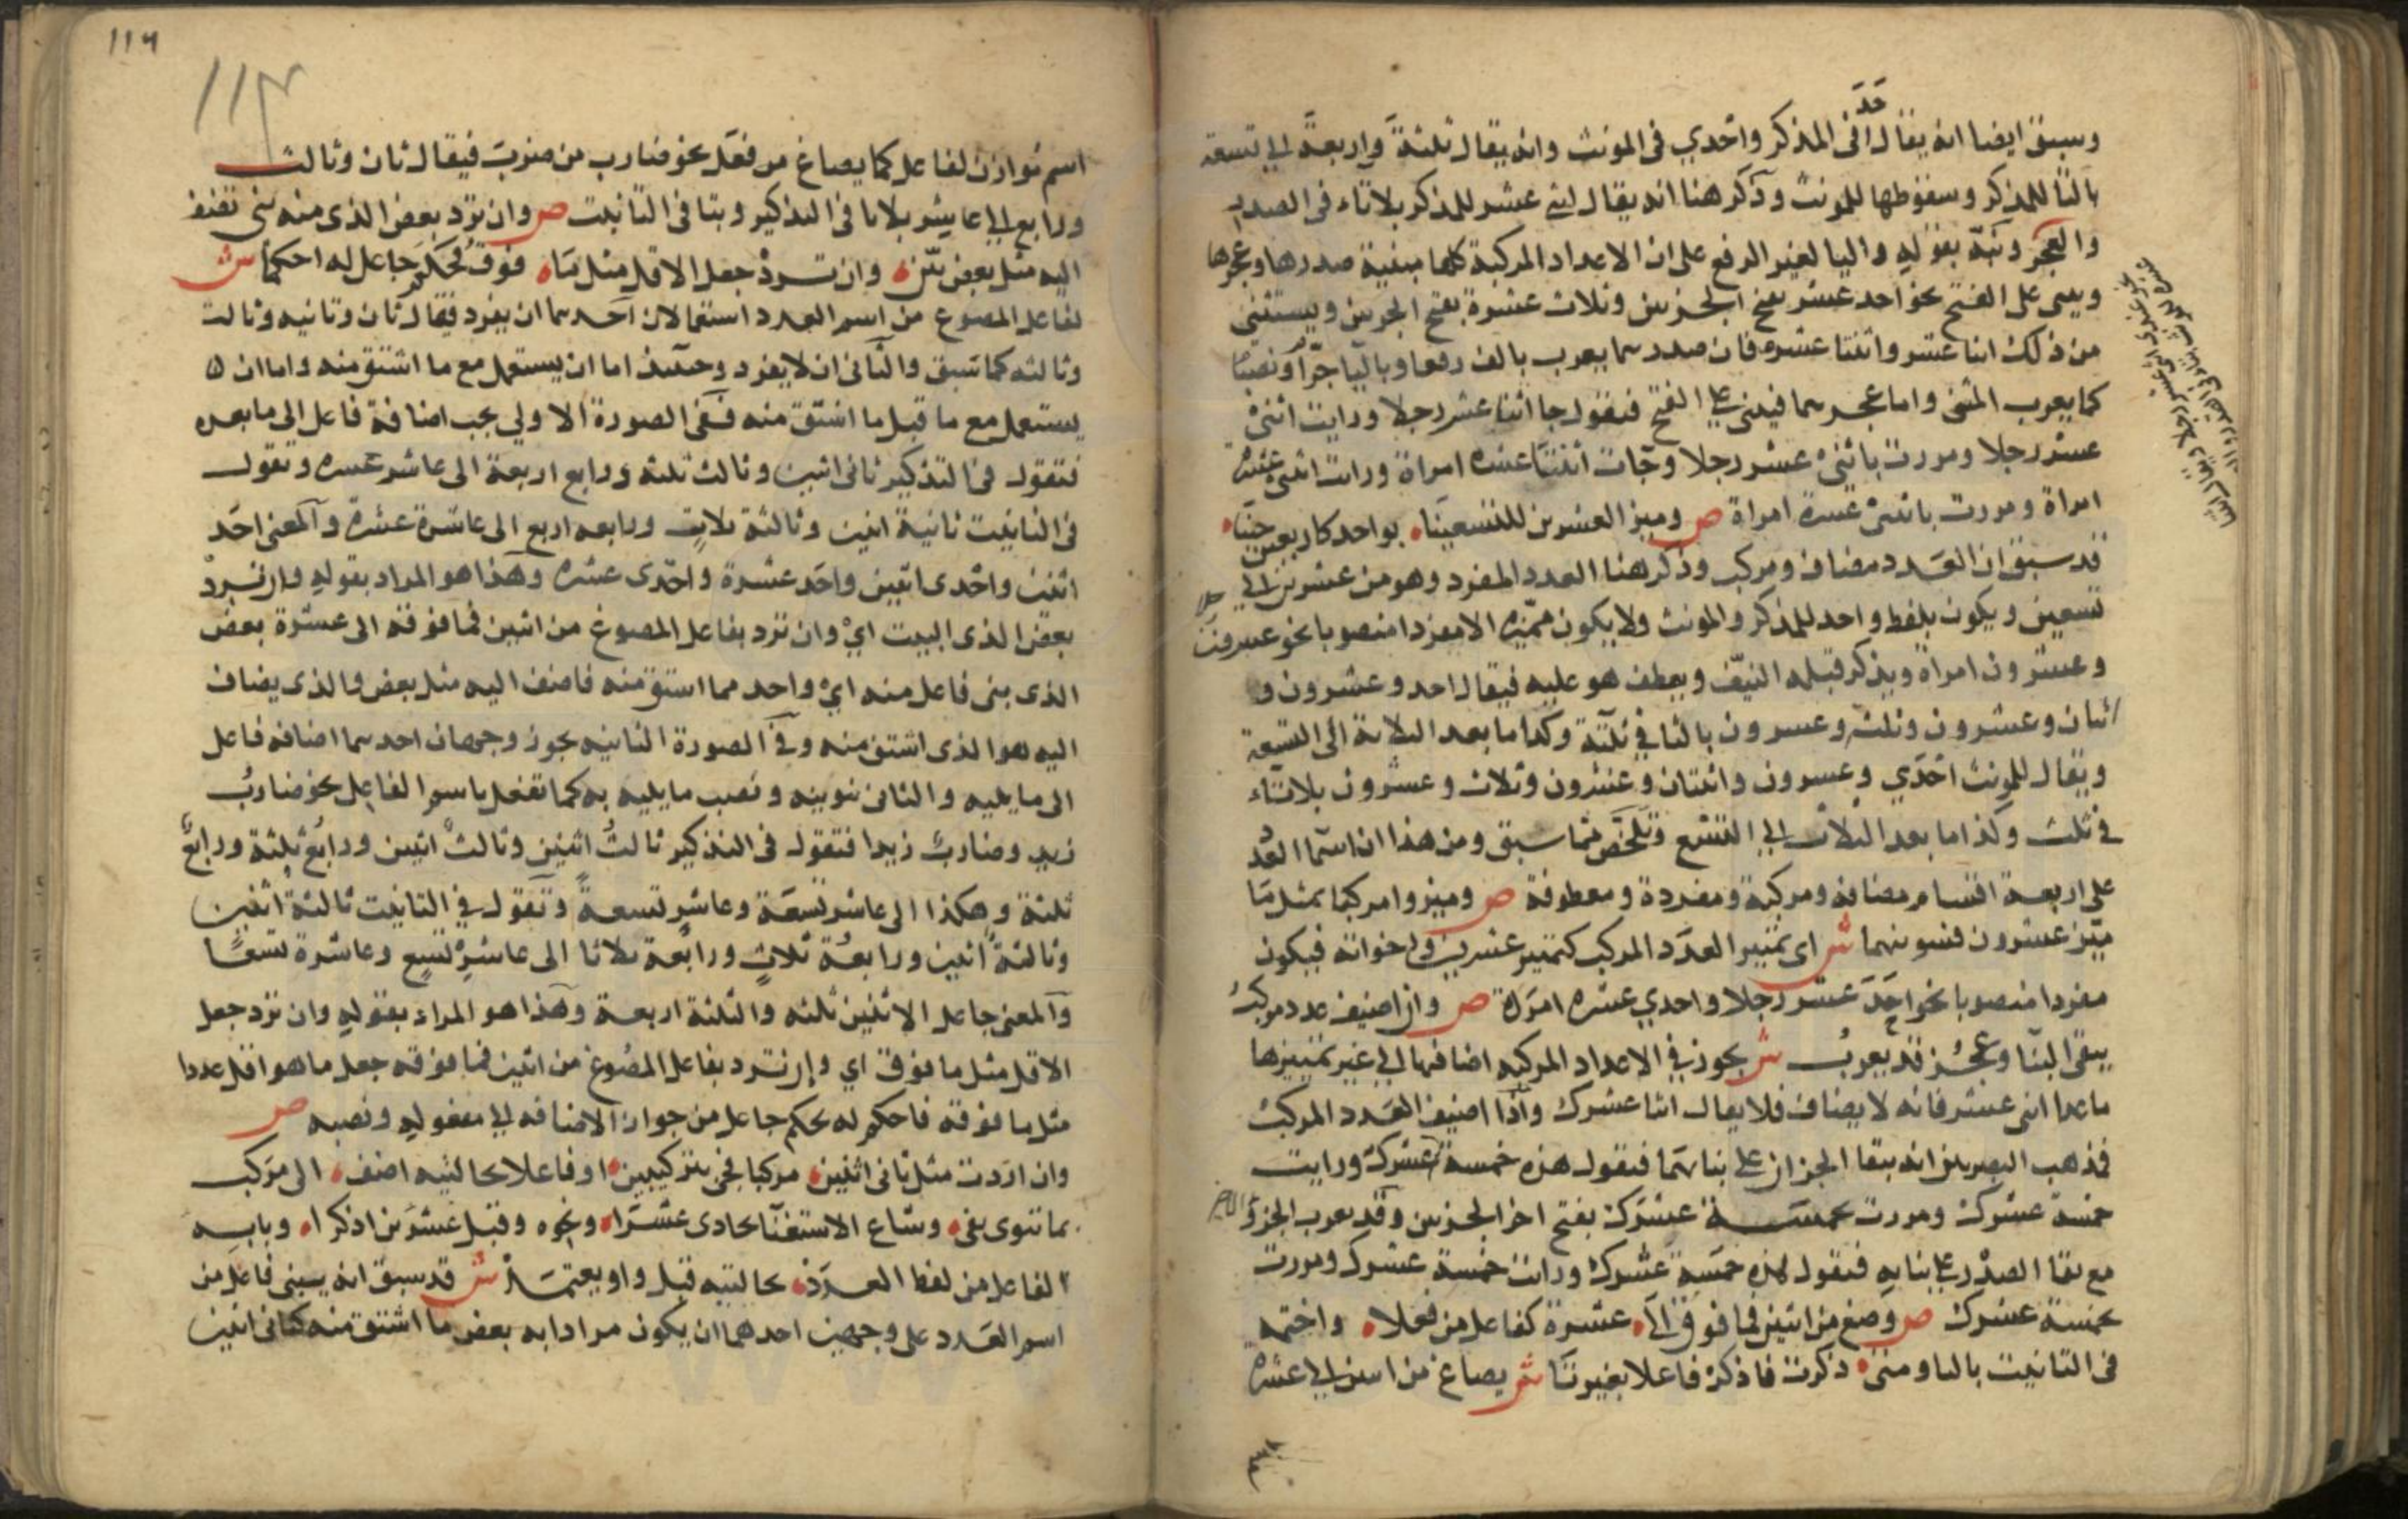 وسبق ايضا انه يقال احد في المذكر واحدي في المونث وانه يقال ثلثة واربعة الي تسعة
بالتا للمذكر وسقوطها للمونث وذكر هنا انه يقال اثنى عشر للمذكر بلاتاء في الصدر
والعجز ونبه بقوله واليا لغير الرفع على ان الاعداد المركبة كلها مبنية صدرها وعجزها
ويبنى على الفتح نحو احد عشر بفتح الجزين وثلاث عشرة بفتح الجزين ويستثنى
من ذلك اثنا عشر واثنتا عشره فان صدرهما يعرب بالف رفعا وباليا جرا ونصبا
كما يعرب المثنى واما عجزهما فيبنى على الفتح فنقول جا اثنا عشر رجلا ورايت اثنى
عشر رجلا ومررت باثنى عشر رجلا وجات اثنتا عشره امراة ورايت اثنتى عشرة
امراة ومررت باثنتى عشرة امراة ص وميز العشرين للتسعينا بواحد كاربعين حينا
قد سبق ان العدد مضاف ومركب وذكر هنا العدد المفرد وهو من عشرين الي
تسعين ويكون بلفظ واحد للمذكر والمونث ولا يكون مميزه الا مفردا منصوبا نحو عشرون رجلا
وعشرون امراة ويذكر قبله النيف ويعطف هو عليه فيقال احد وعشرون و
اثنان وعشرون وثلثه وعشرون بالتا في ثلثة وكذا ما بعد الثلاثة الى التسعة
ويقال للمونث احدي وعشرون واثنتان وعشرون وثلاث وعشرون بلاتاء
في ثلث وكذا ما بعد الثلاث الي التسع وتلخص مما سبق ومن هذا ان اسما العدد
على اربعة اقسام مضافه ومركبة ومفردة ومعطوفة ص وميزوا مركبا بمثل ما
ميز عشرون فسوينهما ش اى تمييز العدد المركب كتمييز عشرين واخواته فيكون
مفردا منصوبا نحو احد عشر رجلا واحدي عشره امراة ص وان اضيف عدد مركب
يبقى البنا وعجز قد يعرب ش يجوز في الاعداد المركبه اضافتها الي غير تمييزها
ما عدا اثنى عشر فانه لا يضاف فلا يقال اثنا عشرك واذا اضيف العدد المركب
فمذهب البصريين انه يبقا الجزان على بنائهما فنقول هذه خمسة عشرك ورايت
خمسة عشرك ومررت بخمسة عشرك بفتح اخر الجزين وقد يعرب الجزؤ الاخر
مع بقا الصدر على بنايه فنقول هذه خمسة عشرك ورايت خمسة عشرك ومررت
بخمسة عشرك ص وصغ من اثنين فما فوق الى عشرة كفاعل من فعلا واختمه
في التانيث بالتا ومتى ذكرت فاذكر فاعلا بغير تا ش يصاغ من اثنين الي عشرة
١١٦
١١٣
اسم موازن لفاعل كما يصاغ من فعل نحو ضارب من ضرب فيقال ثان وثالث
ورابع الي عاشر بلاتا في التذكير وبتا في التانيث ص وان ترد بعض الذى منه بنى تضف
اليه مثل بعض بين وان ترد جعل الاقل مثل ما فوق فحكم جاعل له احكما ش
لفاعل المصوغ من اسم العدد استعمالان احدهما ان يفرد فيقال ثان وثانيه وثالث
وثالثه كما سبق والثاني ان لا يفرد وحينئذ اما ان يستعمل مع ما اشتق منه واما ان
يستعمل مع ما قبل ما اشتق منه ففى الصورة الاولي يجب اضافة فاعل الى ما بعده
فتقول في التذكير ثانى اثنين وثالث ثلثه ورابع اربعة الى عاشر عشره وتقول
في التانيث ثانية اثنين وثالثة ثلاث ورابعه اربع الى عاشرة عشرة والمعنى احد
اثنين واحدى اثنين واحد عشرة واحدى عشره وهذا هو المراد بقوله وان ترد
بعض الذى البيت اي وان ترد بفاعل المصوغ من اثنين فما فوقه الى عشرة بعض
الذى بنى فاعل منه اي واحد مما اشتق منه فاضف اليه مثل بعض والذى يضاف
اليه هو الذى اشتق منه وفي الصورة الثانيه يجوز وجهان احدهما اضافه فاعل
الى ما يليه والثاني تنوينه ونصب ما يليه به كما تفعل باسم الفاعل نحو ضارب
زيد وضارب زيدا فتقول في التذكير ثالث اثنين وثالث اثنين ورابع ثلثة ورابع
ثلثة وهكذا الى عاشر تسعة وعاشر تسعة وتقول في التانيث ثالثة اثنين
وثالثة اثنين ورابعة ثلاث ورابعة ثلاثا الى عاشرة تسع وعاشرة تسعا
والمعنى جاعل الاثنين ثلثه والثلثة اربعة وهذا هو المراد بقوله وان ترد جعل
الاقل مثل ما فوق اي وان ترد بفاعل المصوغ من اثنين فما فوقه جعل ما هو اقل عددا
مثل ما فوقه فاحكم له بحكم جاعل من جواز الاضافه الي مفعوله ونصبه ص
وان اردت مثل ثانى اثنين مركبا فجئ بتركيبين او فاعلا بحالتيه اضف الى مركب
بما تنوى يفى وشاع الاستغنا بحادى عشرا ونحوه وقبل عشرين اذكرا وبابه
الفاعل من لفظ العدد بحالتيه قبل واو يعتمد ش قد سبق انه يبنى فاعل من
اسم العدد على وجهين احدهما ان يكون مرادا به بعض ما اشتق منه كثانى اثنين